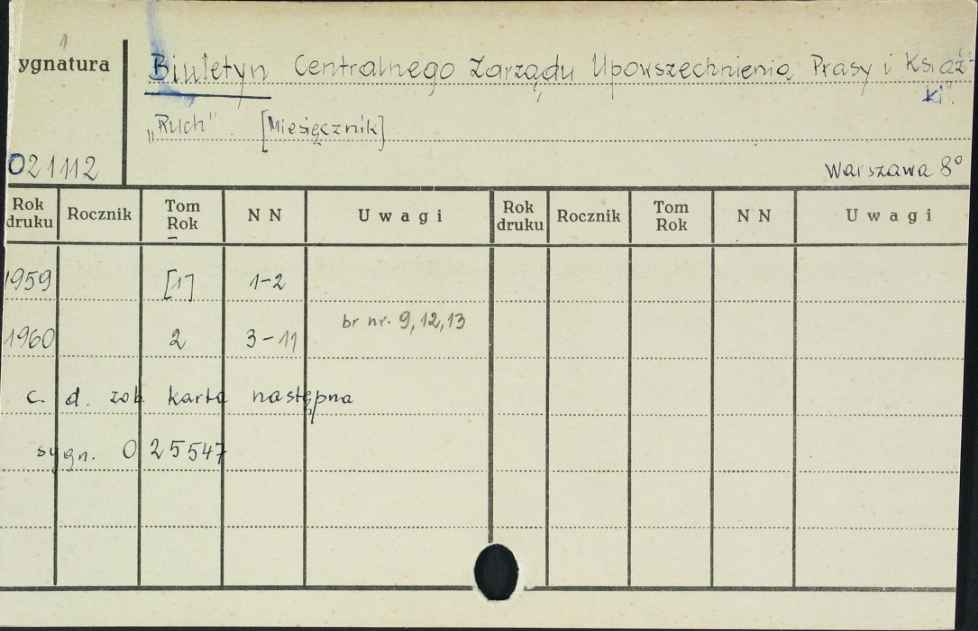 1
ygnatura
Biuletyn Centralnego Zarządu Upowszechnienia Prasy i Książ-
ki".
„Ruch". [Miesięcznik]
021112
Warszawa 8°
Rok druku Rocznik Tom Rok N N Uwagi Rok druku Rocznik Tom Rok N N Uwagi
1959 [1] 1-2
1960 2 3-11 br nr. 9,12,13
c. d. zob karta następna
sygn. 025547